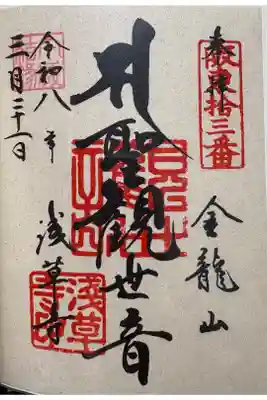 奉拝
坂東拾三番
金龍山
聖観世音
浅草寺
浅草寺印
令和八年
三月二十一日